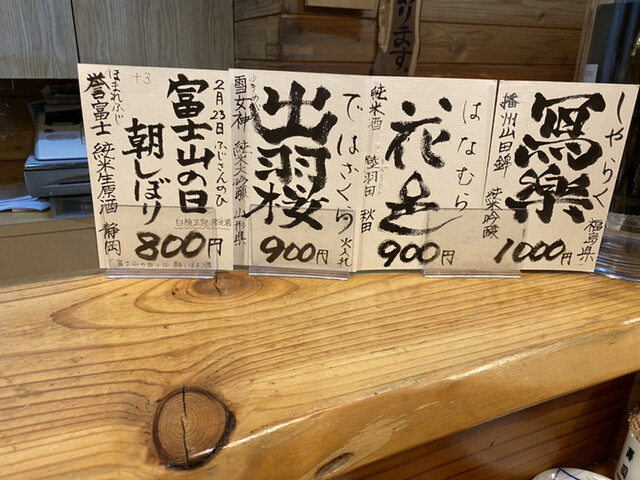 しゃらく
寫樂
播州山田錦
純米吟醸
福島県
1000円
はなむら
花邑
純米酒
陸羽田
秋田
900円
ではざくら
出羽桜
雪女神
純米大吟醸
山形県
火入れ
900円
2月23日ふじさんのひ
富士山の日
朝しぼり
+3
ほまれふじ
誉富士
純米生原酒
静岡
800円
富士山の日朝しぼり
ります